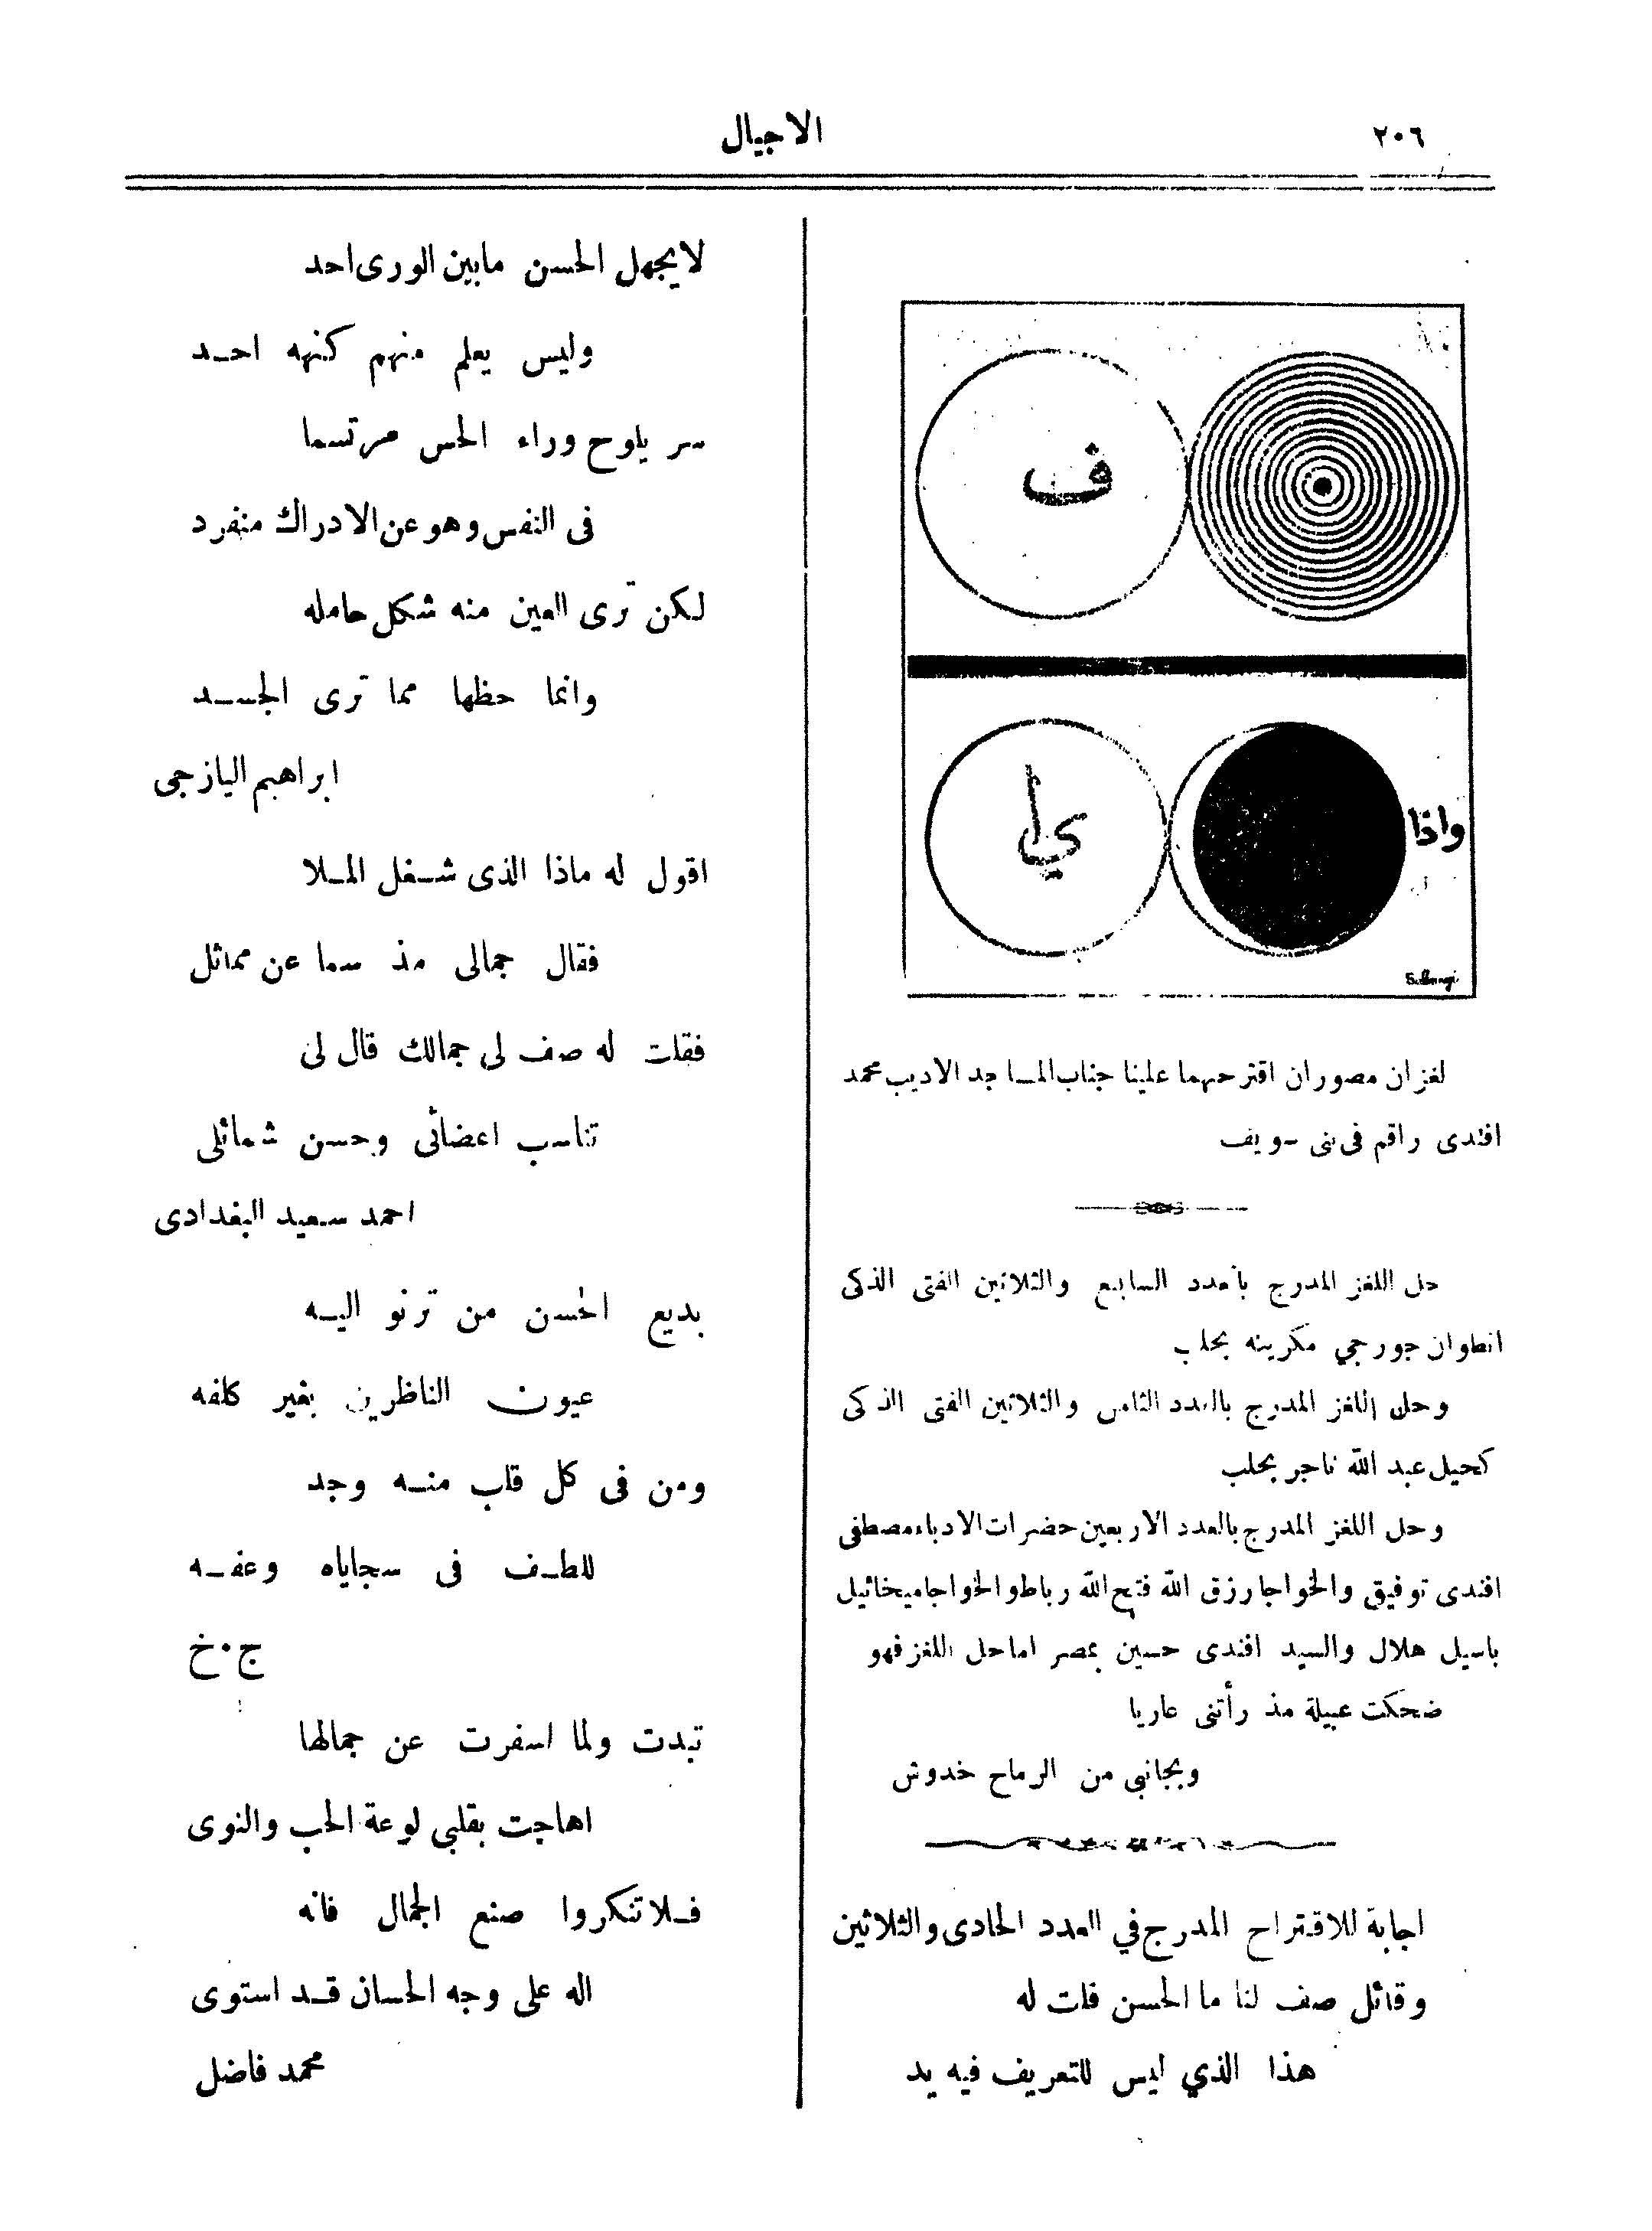 ٢٠٦
الاجيال
ف
واذا
ي
لغزان مصوران اقترحهما علينا جناب المـاجد الاديب محمد
افندى راقم فى بنى سويف
حل اللغز المدرج بالعدد السابع والثلاثين الفتى الذكى
انطوان جورجي مكربنه بحلب
وحل اللغز المدرج بالعدد الثامن والثلاثين الفتى الذكى
كحيل عبد الله تاجر بحلب
وحل اللغز المدرج بالعدد الاربعين حضرات الادباء مصطفى
افندى توفيق والخواجا رزق الله فتح الله رباط والخواجا ميخائيل
باسيل هلال والسيد افندى حسين بمصر اما حل اللغز فهو
ضحكت عبيلة مذ رأتنى عاريا
وبجانبى من الرماح خدوش
اجابة للاقتراح المدرج في العدد الحادى والثلاثين
وقائل صف لنا ما الحسن قلت له
هذا الذي ليس للتعريف فيه يد
لا يجهل الحسن ما بين الورى احد
وليس يعلم منهم كنهه احـد
سر يلوح وراء الحس مرتسما
فى النفس وهو عن الادراك منفرد
لكن ترى العين منه شكل حامله
وانما حظها مما ترى الجسـد
ابراهيم اليازجى
اقول له ماذا الذى شـغل المـلا
فقال جمالى مذ سما عن مماثل
فقلت له صف لى جمالك قال لى
تناسب اعضائى وحسن شمائلى
احمد سعيد البغدادى
بديع الحسن من ترنو اليـه
عيون الناظرين بغير كلفه
ومن فى كل قلب منـه وجد
للطـف فى سجاياه وعفـه
ج٠خ
تبدت ولما اسفرت عن جمالها
اهاجت بقلبي لوعة الحب والنوى
فـلا تنكروا صنع الجمال فانه
اله على وجه الحسان قـد استوى
محمد فاضل